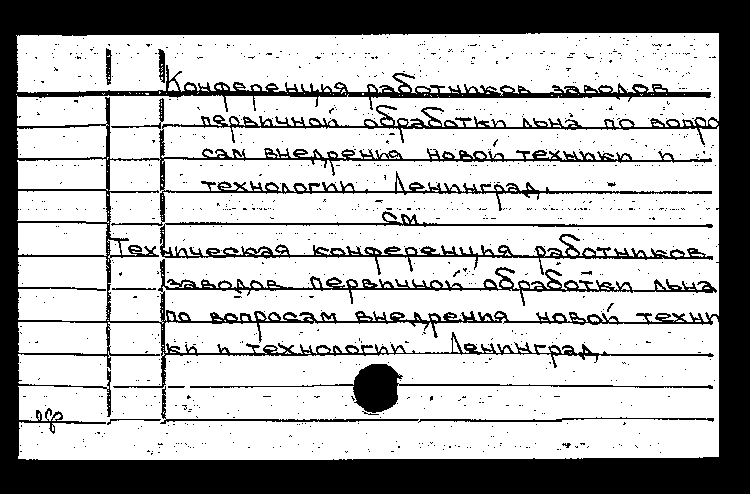 Конференция работников заводов
первичной обработки льна по вопро
сам внедрения новой техники и
технологии. Ленинград.
см.
Техническая конференция работников
заводов первичной обработки льна
по вопросам внедрения новой техни
ки и технологии. Ленинград.